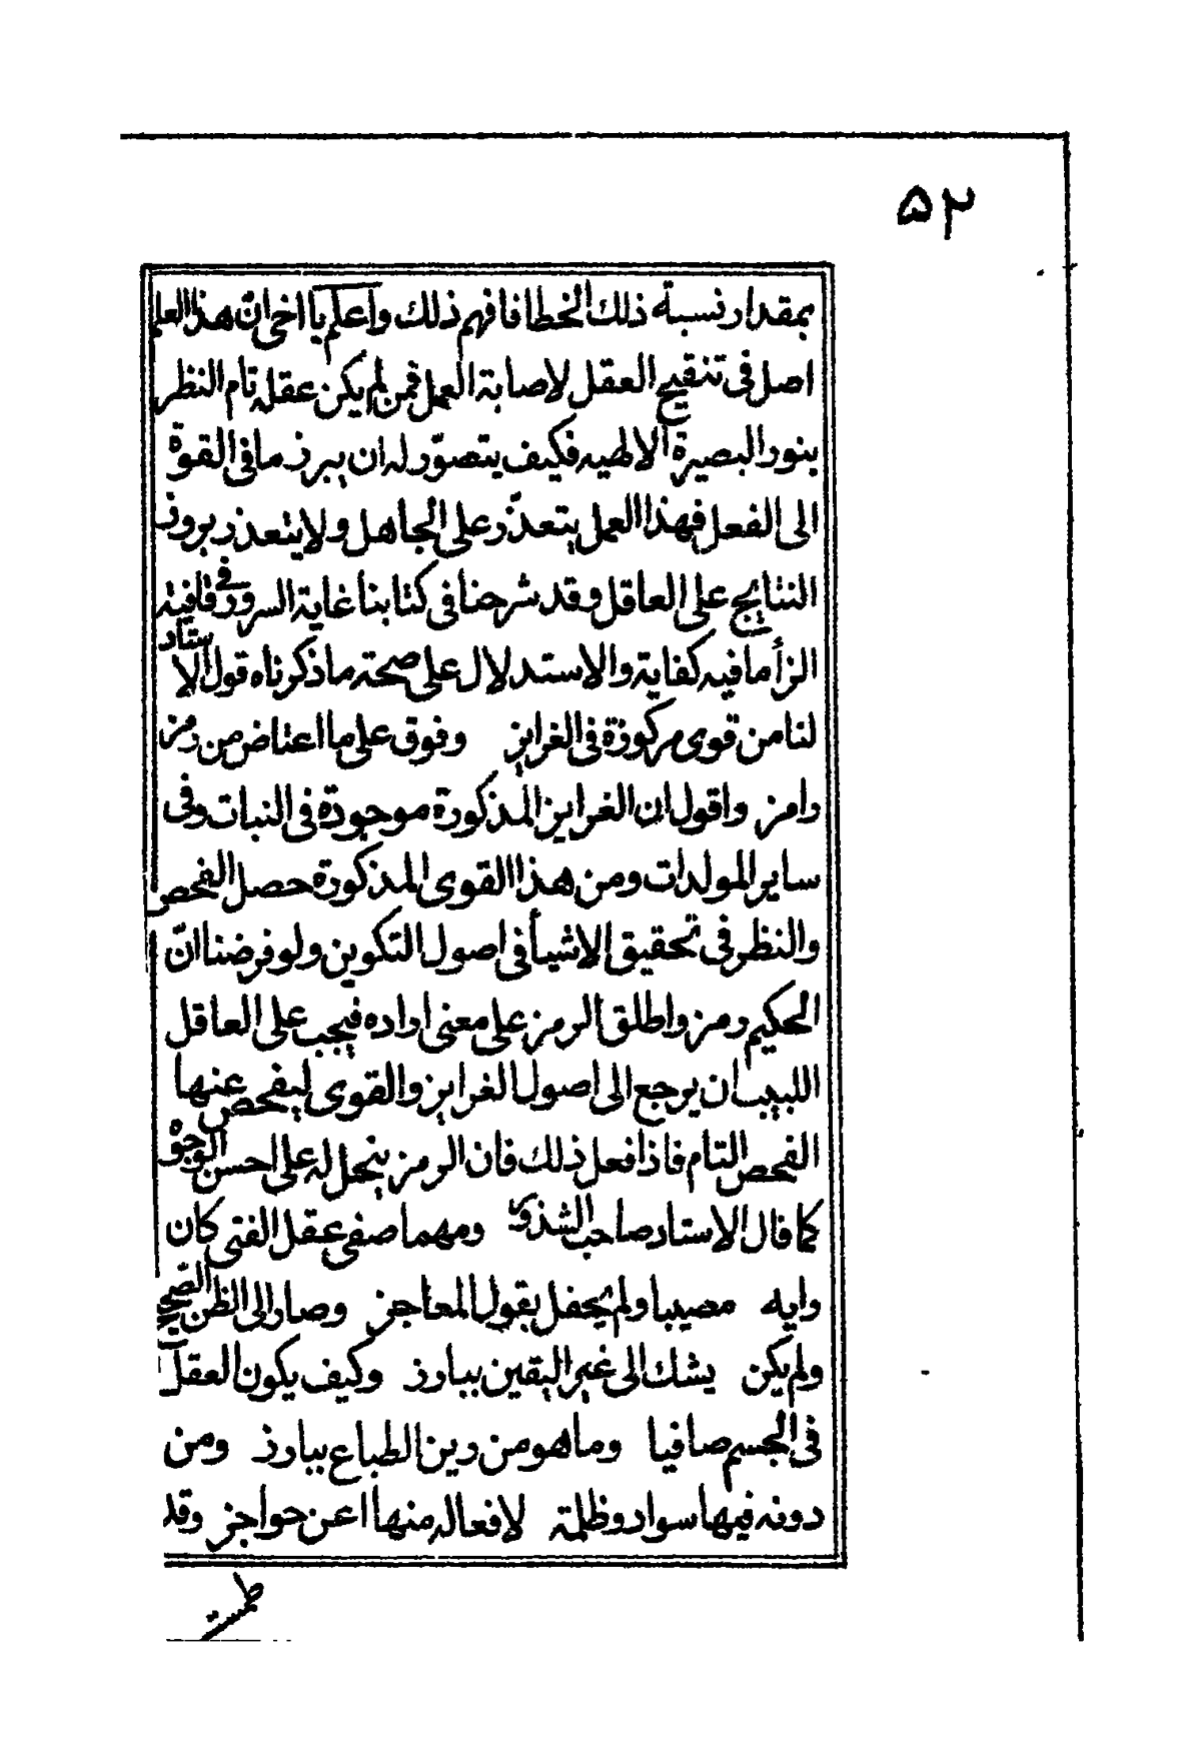 ۵۲
بمقدار نسبة ذلك الخطا فافهم ذلك واعلم يا اخى انّ هذا العلم
اصل فى تنقيح العقل لاصابة العمل فمن لم يكن عقله تام النظر
بنور البصيرة الالهيه فكيف يتصوّر له ان يبرز ما فى القوة
الى الفعل فهذا العمل يتعذّر على الجاهل ولا يتعذر بروز
النتايج على العاقل وقد شرحنا فى كتابنا غاية السرور فى قافية
الزأ ما فيه كفاية والاستدلال على صحة ما ذكرناه قول الاستاد
لنا من قوى مركوزة فى الغرايز وفوق على ما اعتاض من رمز
رامز واقول ان الغرايز المذكورة موجودة فى النبات وفى
ساير المولدات ومن هذا القوى المذكورة حصل الفحص
والنظر فى تحقيق الاشيأ فى اصول التكوين ولو فرضنا انّ
الحكيم رمز واطلق الرمز على معنى اراده فيجب على العاقل
اللبيب ان يرجع الى اصول الغرايز والقوى ليفحص عنها
الفحص التام فاذا فعل ذلك فان الرمز ينحل له على احسن الوجوه
كما قال الاستاد صاحب الشذور ومهما صفى عقل الفتى كان
رايه مصيبا ولم يحفل بقول المعاجز وصار الى الظن الصحيح
ولم يكن يشك الى غير اليقين ببارز وكيف يكون العقل
فى الجسم صافيا وما هو من رين الطباع ببارز ومن
دونه فيها سواد وظلمة لافعاله منها اعن حواجز وقد
طمست